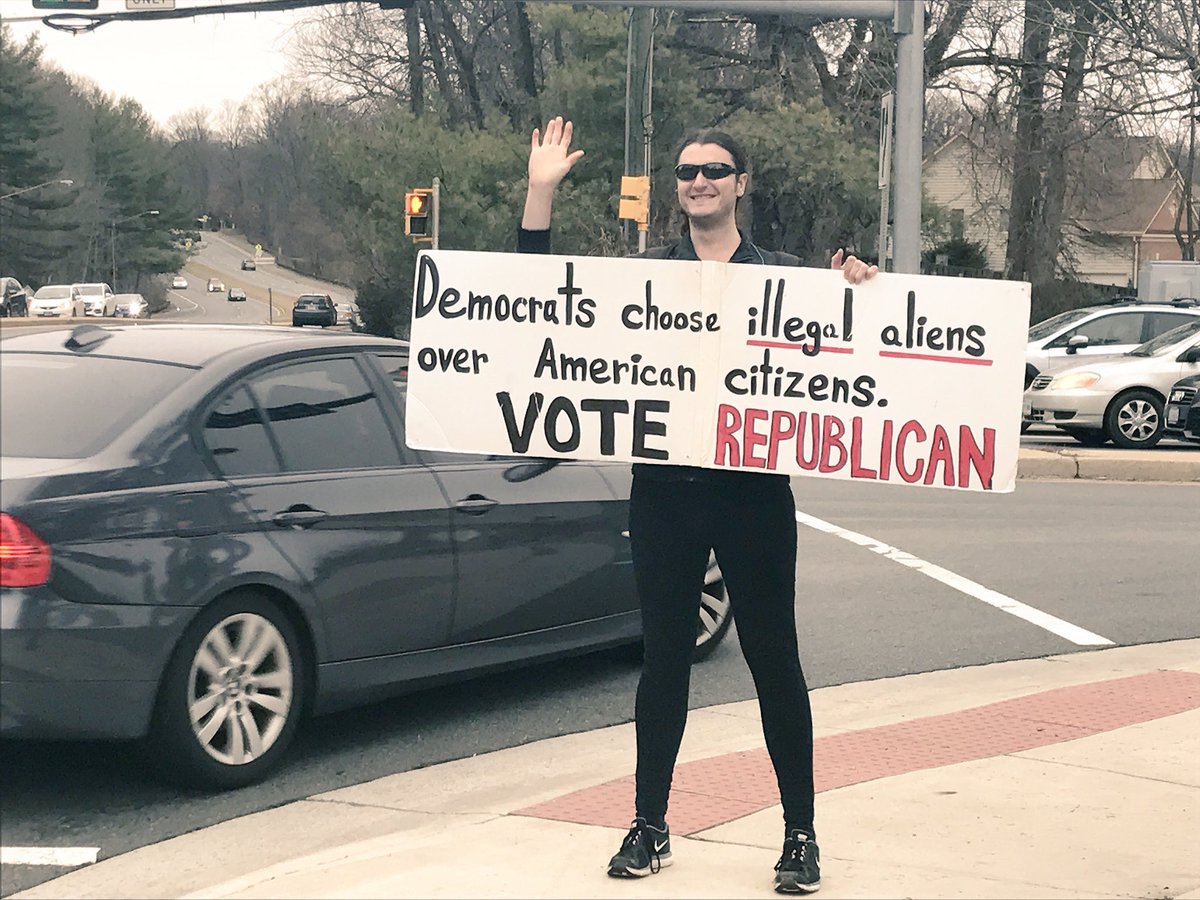 ONLY
Democrats choose illegal aliens
over American citizens.
VOTE REPUBLICAN